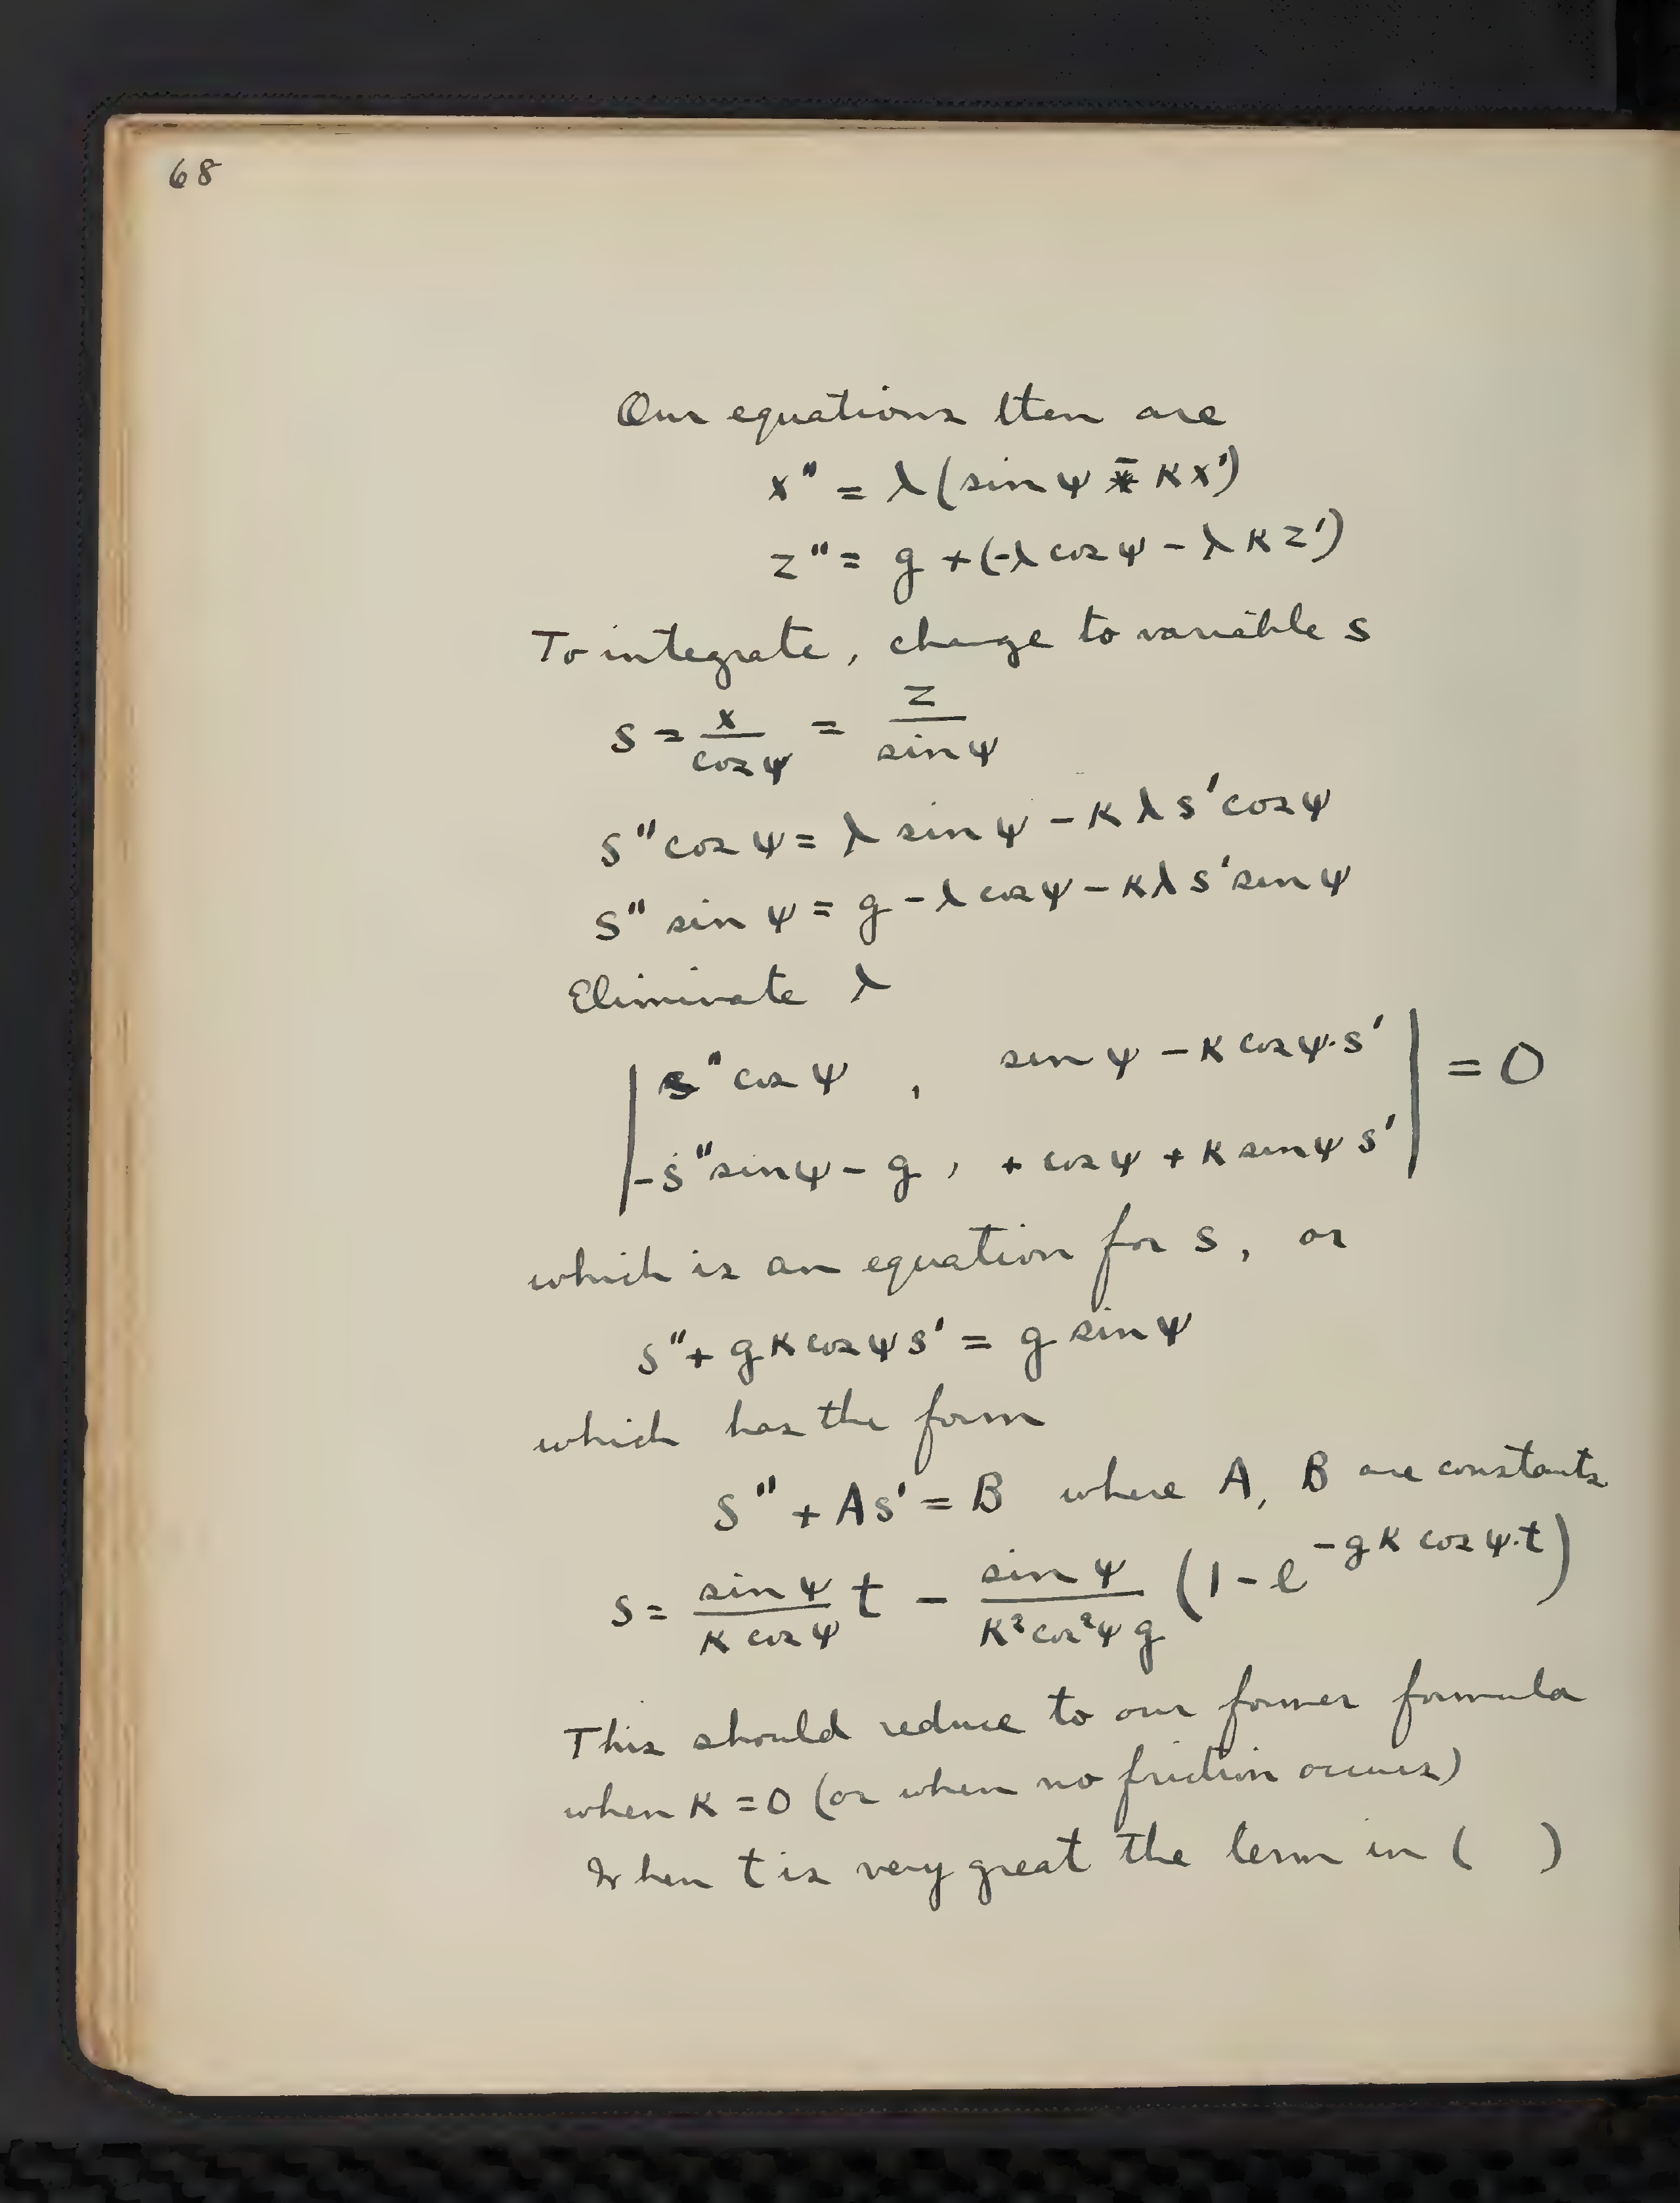 68
Our equations then are
x'' = λ(sin ψ - κx')
z'' = g + (-λ cos ψ - λκz')
To integrate, change to variable s
s = x/cos ψ = z/sin ψ
s'' cos ψ = λ sin ψ - κλs' cos ψ
s'' sin ψ = g - λ cos ψ - κλs' sin ψ
Eliminate λ
| s'' cos ψ , sin ψ - κ cos ψ·s' | = 0
| -s'' sin ψ - g , + cos ψ + κ sin ψ s' |
which is an equation for s, or
s'' + gκ cos ψ s' = g sin ψ
which has the form
s'' + As' = B where A, B are constants
s = sin ψ/κ cos ψ t - sin ψ/κ² cos² ψ g (1 - e^{-gκ cos ψ·t})
This should reduce to our former formula
when κ = 0 (or when no friction occurs)
When t is very great the term in ( )